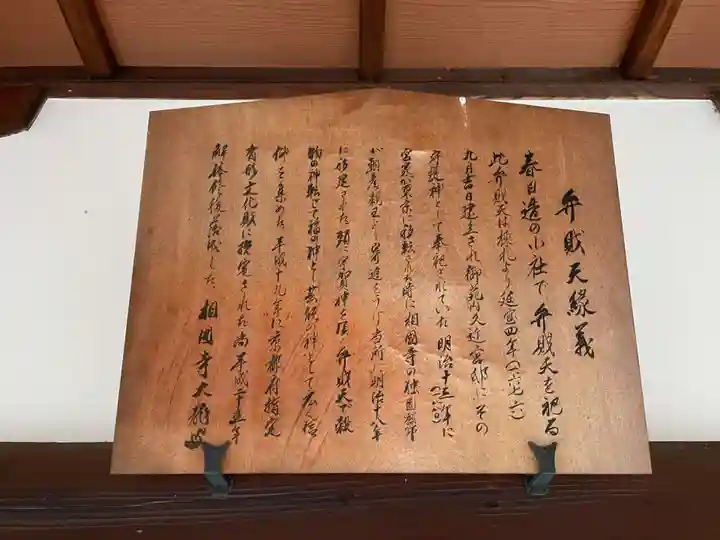 弁財天縁義
春日造の小社で弁財天を祀る
此弁財天は棟札より延宝四年(一六七六)
九月吉日建立され御苑内久邇宮邸にその
守護神として奉祀されていた 明治十三年(一八八〇)に
宮家が東京に移転された時に相国寺の独園禅師
が朝彦親王より寄進をうけ当所に明治十八年
に移建された 頭に宇賀神を頂く弁財天で穀
物の神転じて福の神とし芸能の神として広く信
仰を集めた 平成十九年に京都府指定
有形文化財に指定された 尚平成二十五年
解体修復落成した 相国寺大龍